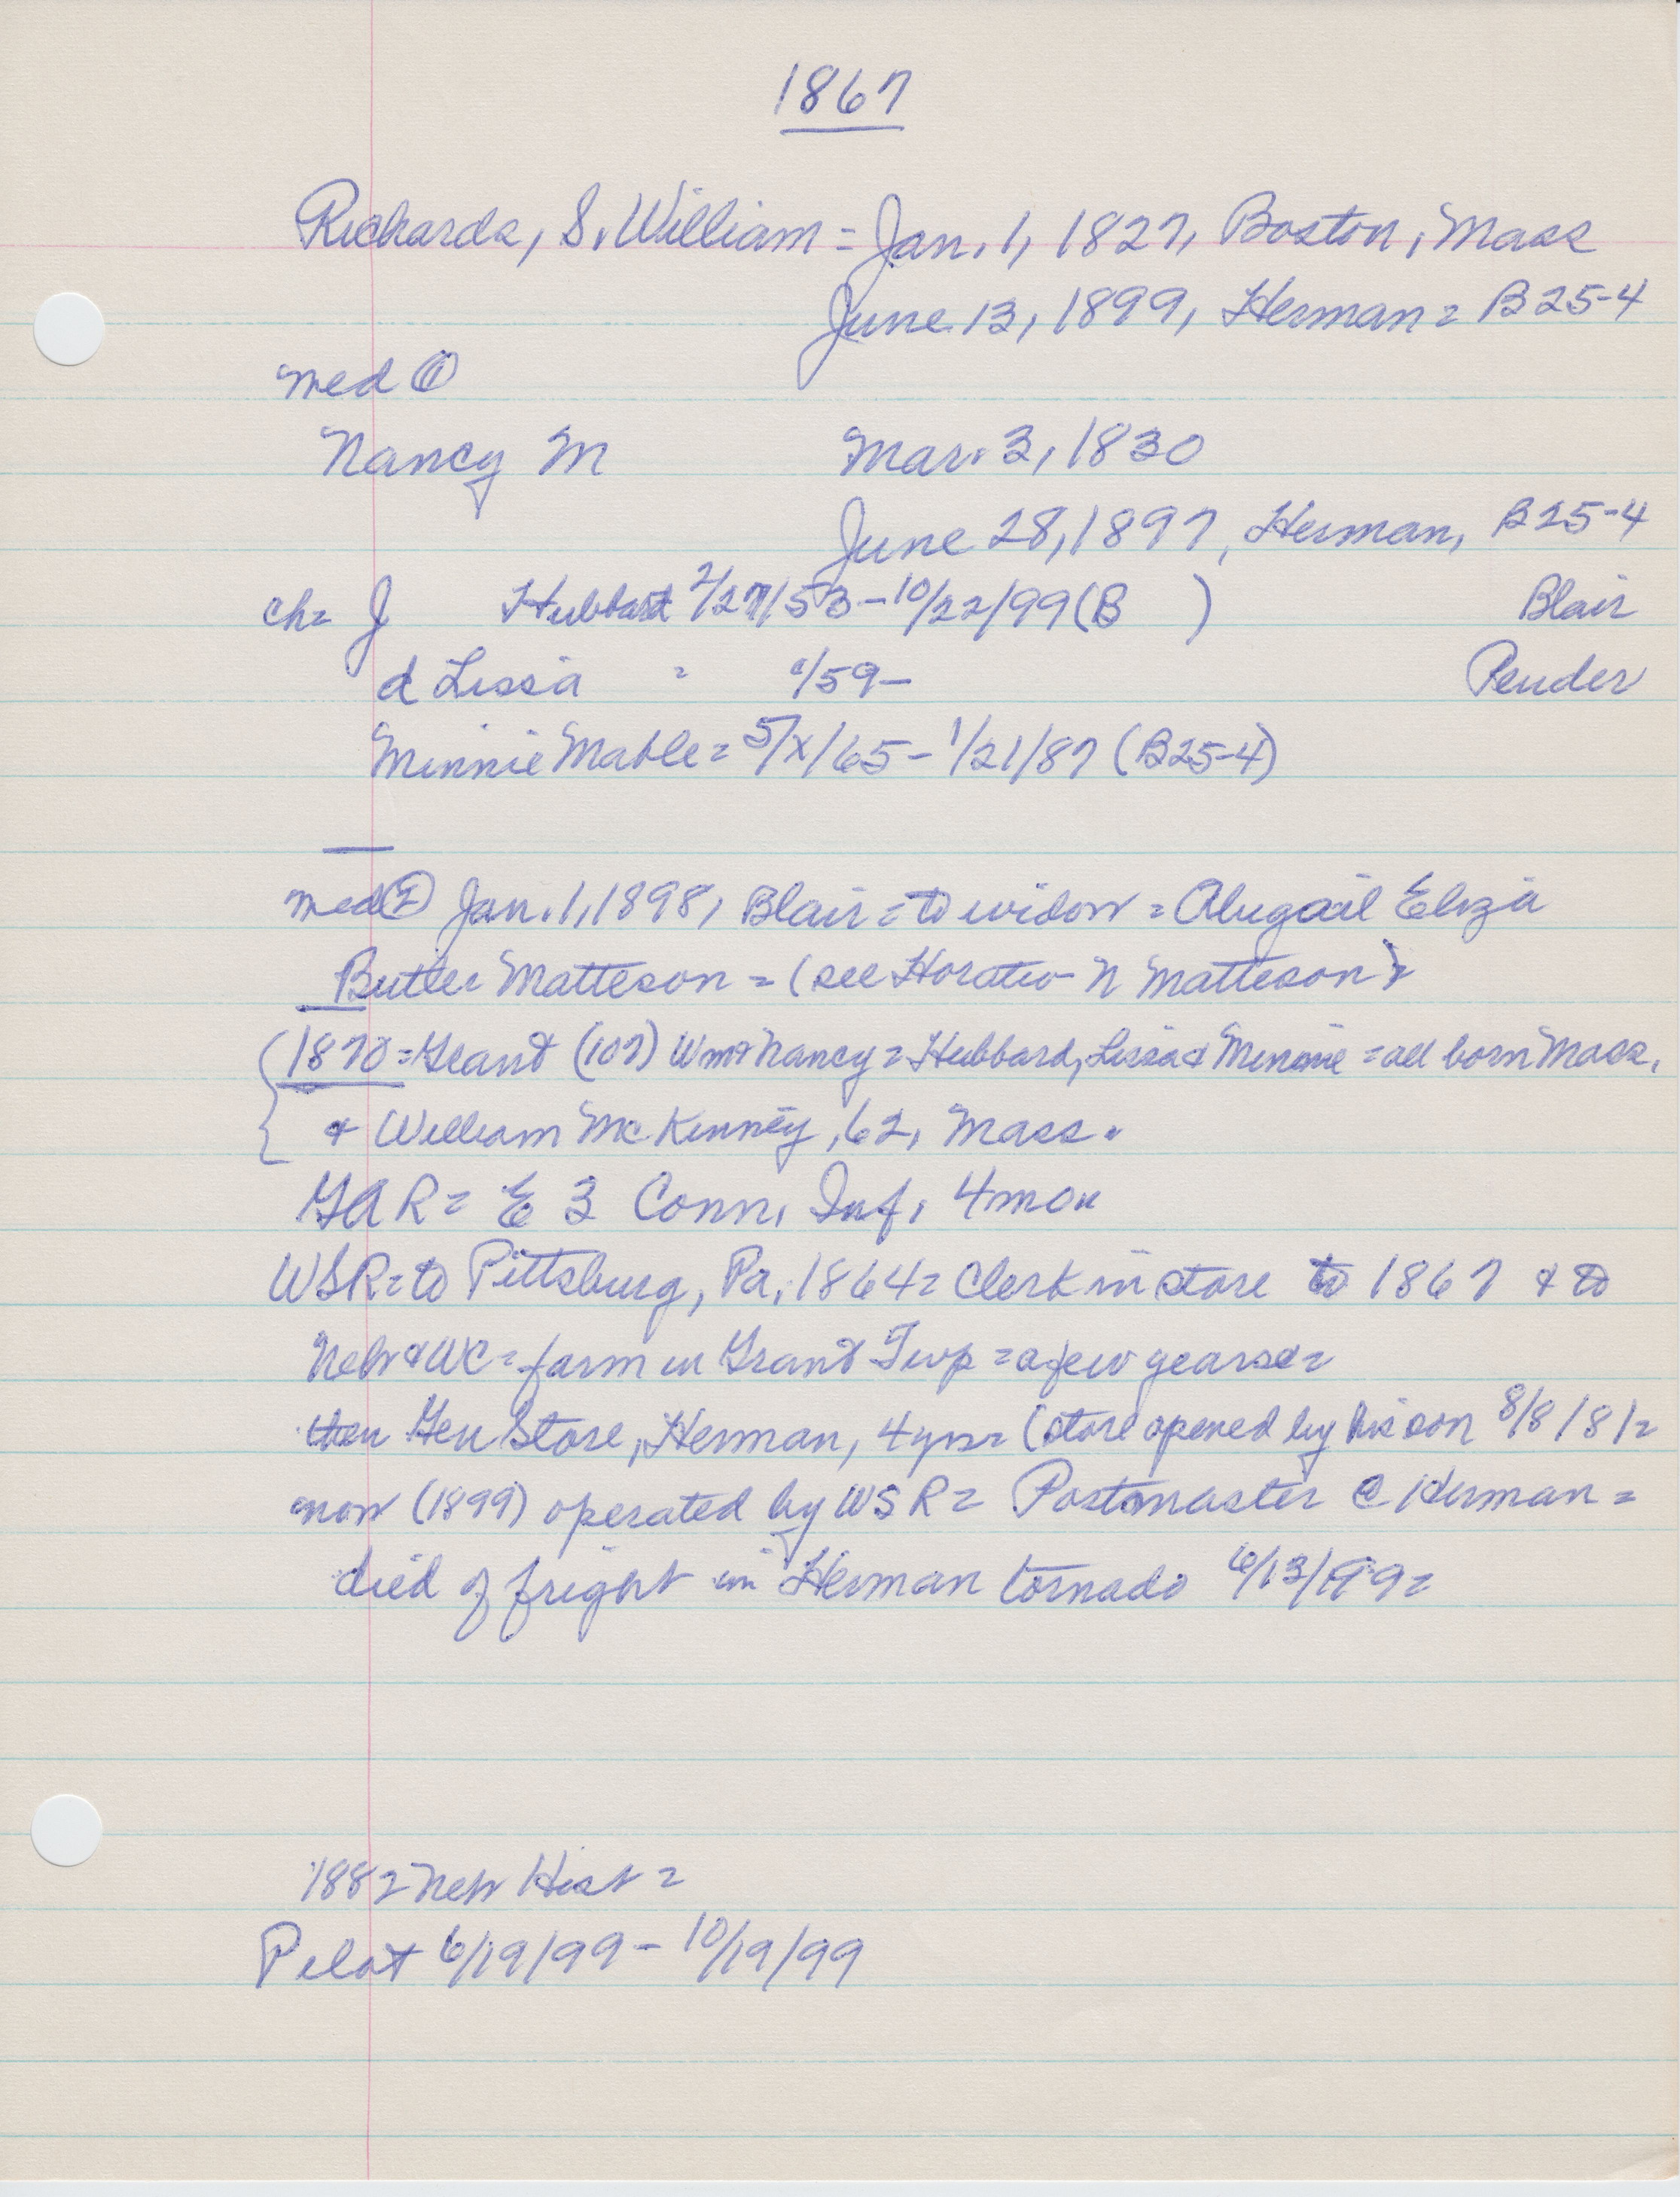 1867
Richards, S. William = Jan. 1, 1827, Boston, Mass
June 13, 1899, Herman = B25-4
med ①
Nancy M Mar. 3, 1830
June 28, 1897, Herman, B25-4
ch= J Hubbard 2/27/53 - 10/22/99 (B ) Blair
d Lissia = /59 - Pender
Minnie Mable = 5/x/65 - 1/21/87 (B25-4)
med ② Jan. 1, 1898, Blair = to widow = Abigail Eliza
Butler Matteson = (see Horatio N Matteson)
1870 = Grant (107) Wm & Nancy = Hubbard, Lissia & Minnie = all born Mass.
& William McKinney, 62, Mass.
GAR = E 3 Conn. Inf. 4 mon
WSR = to Pittsburg, Pa, 1864 = Clerk in store to 1867 & to
Nebr & WC = farm in Grant Twp = a few years =
then Gen Store, Herman, 4 yrs = (store opened by his son 8/8/81 =
now (1899) operated by WSR = Postmaster @ Herman =
died of fright in Herman tornado 6/13/99 =
1882 Nebr Hist =
Pilot 6/19/99 - 10/19/99